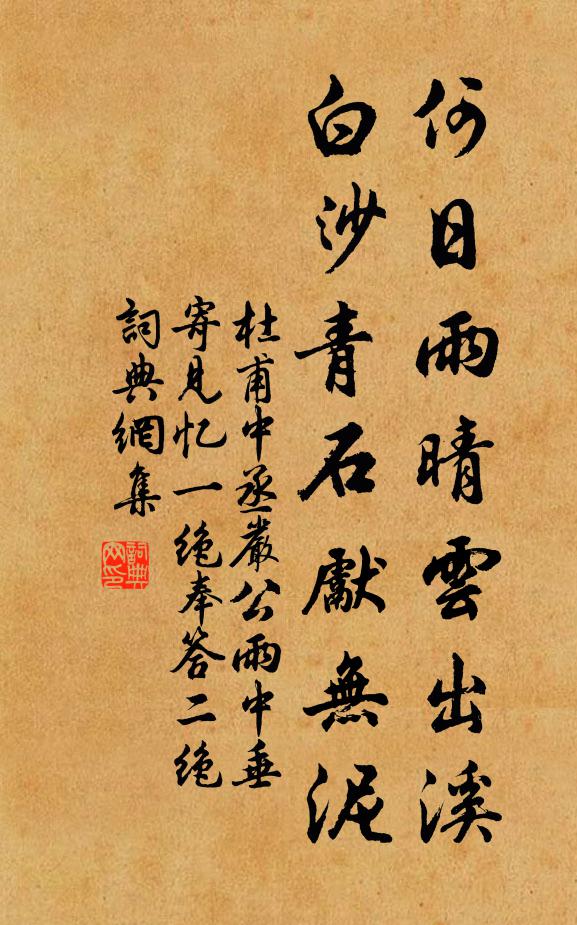 何日雨晴雲出溪
白沙青石獻無泥
杜甫中丞嚴公雨中垂
寄見忆一絕奉答二絕
詞典網集
詞典网印